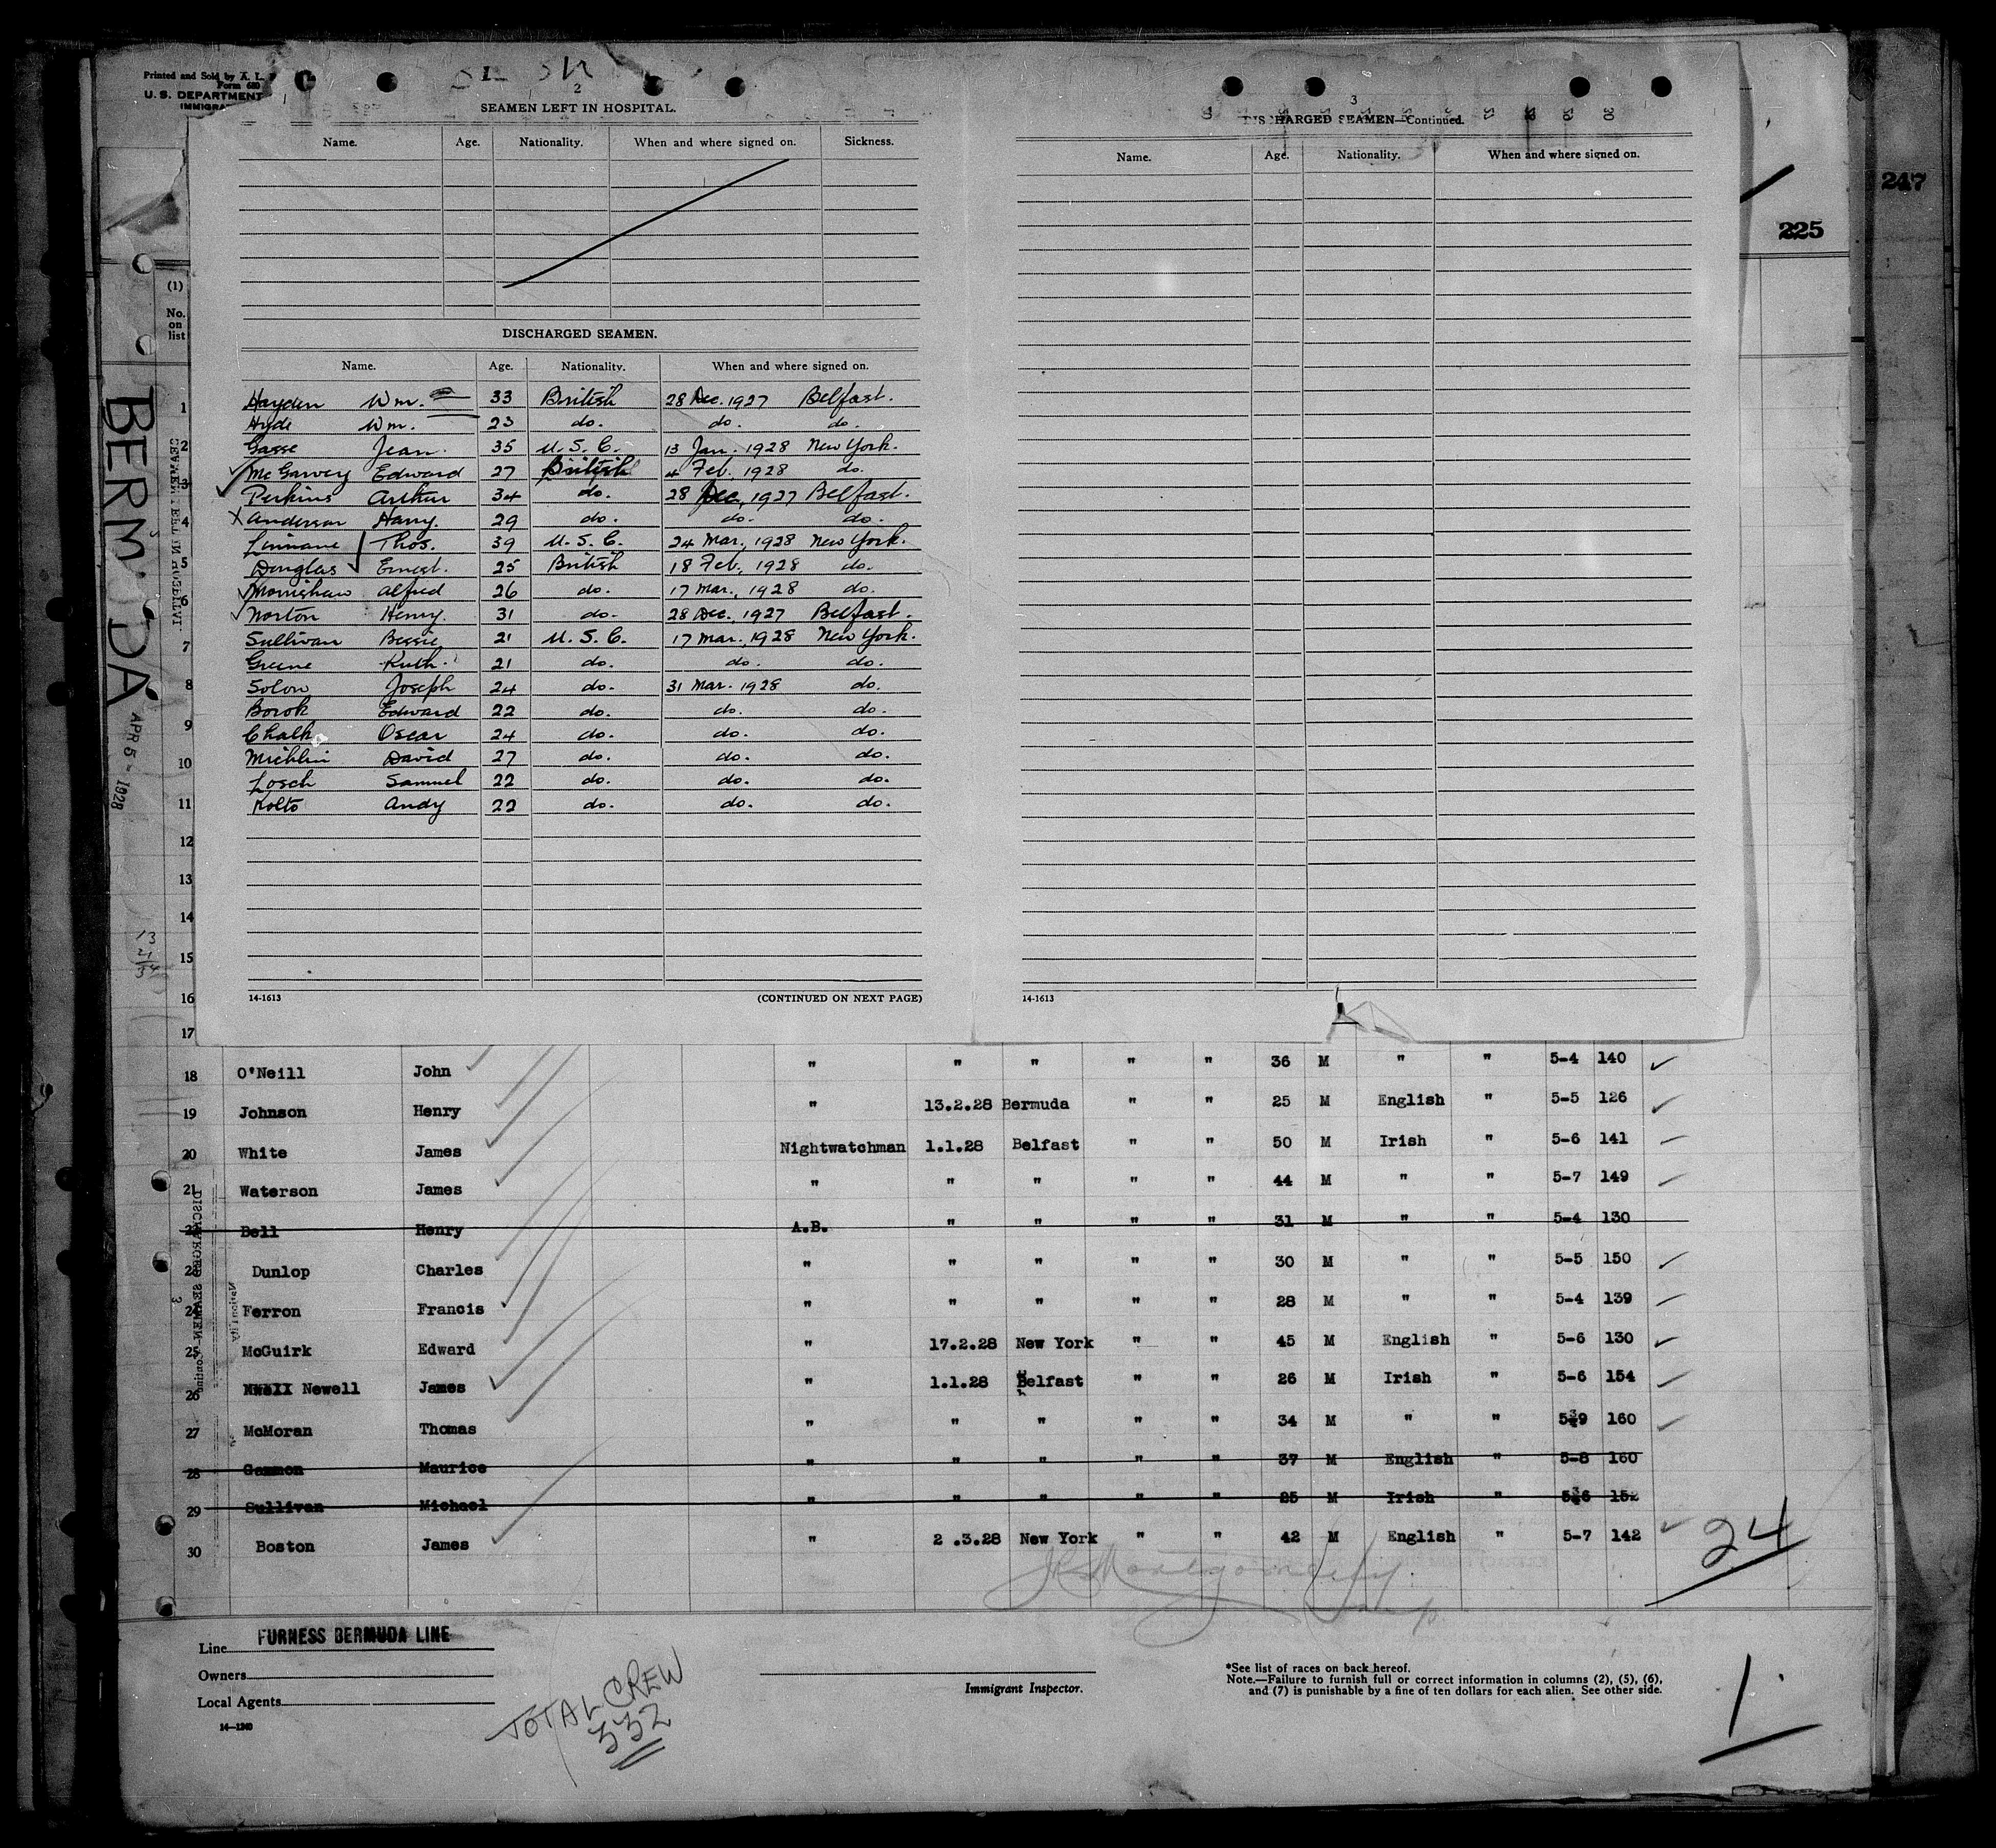 Printed and Sold by A. L.
Form 680
U. S. DEPARTMENT
IMMIGRA
2
SEAMEN LEFT IN HOSPITAL.
Name. Age. Nationality. When and where signed on. Sickness.
DISCHARGED SEAMEN.
Name. Age. Nationality. When and where signed on.
Hayden Wm. 33 British 28 Dec. 1927 Belfast.
Hyde Wm. 23 do. do. do.
Gasse Jean. 35 U. S. C. 13 Jan. 1928 New York.
McGarvey Edward 27 British 4 Feb. 1928 do.
Perkins Arthur 34 do. 28 Dec, 1927 Belfast.
X Anderson Harry. 29 do. do. do.
Linnane Thos. 39 U. S. C. 24 Mar, 1928 New York.
Douglas Ernest. 25 British 18 Feb, 1928 do.
Alfred 26 do. 17 Mar, 1928 do.
Norton Henry. 31 do. 28 Dec. 1927 Belfast.
Sullivan Bessie 21 U. S. C. 17 Mar, 1928 New York.
Greene Ruth. 21 do. do. do.
Solow Joseph 24 do. 31 Mar. 1928 do.
Borok Edward 22 do. do. do.
Chalk Oscar 24 do. do. do.
Michlin David 27 do. do. do.
Losch Samuel 22 do. do. do.
Kolto Andy 22 do. do. do.
14-1613 (CONTINUED ON NEXT PAGE)
3
DISCHARGED SEAMEN—Continued.
Name. Age. Nationality. When and where signed on.
14-1613
247
225
(1)
No. on list
1
2
3
4
5
6
7
8
9
10
11
12
13
14
15
16
17
BERMUDA
APR 5 - 1928
13
21
34
18 O'Neill John " " " " " 36 M " " 5-4 140
19 Johnson Henry " 13.2.28 Bermuda " " 25 M English " 5-5 126
20 White James Nightwatchman 1.1.28 Belfast " " 50 M Irish " 5-6 141
21 Waterson James " " " " " 44 M " " 5-7 149
22 Bell Henry A.B. " " " " 31 M " " 5-4 130
23 Dunlop Charles " " " " " 30 M " " 5-5 150
24 Ferron Francis " " " " " 28 M " " 5-4 139
25 McGuirk Edward " 17.2.28 New York " " 45 M English " 5-6 130
26 Newell James " 1.1.28 Belfast " " 26 M Irish " 5-6 154
27 McMoran Thomas " " " " " 34 M " " 5-9 160
28 Gammon Maurice " " " " " 37 M English " 5-8 160
29 Sullivan Michael " " " " " 25 M Irish " 5-6 152
30 Boston James " 2 .3.28 New York " " 42 M English " 5-7 142
24
Line FURNESS BERMUDA LINE
Owners
Local Agents
14—1240
TOTAL CREW
332
Immigrant Inspector.
*See list of races on back hereof.
Note.—Failure to furnish full or correct information in columns (2), (5), (6),
and (7) is punishable by a fine of ten dollars for each alien. See other side.
1